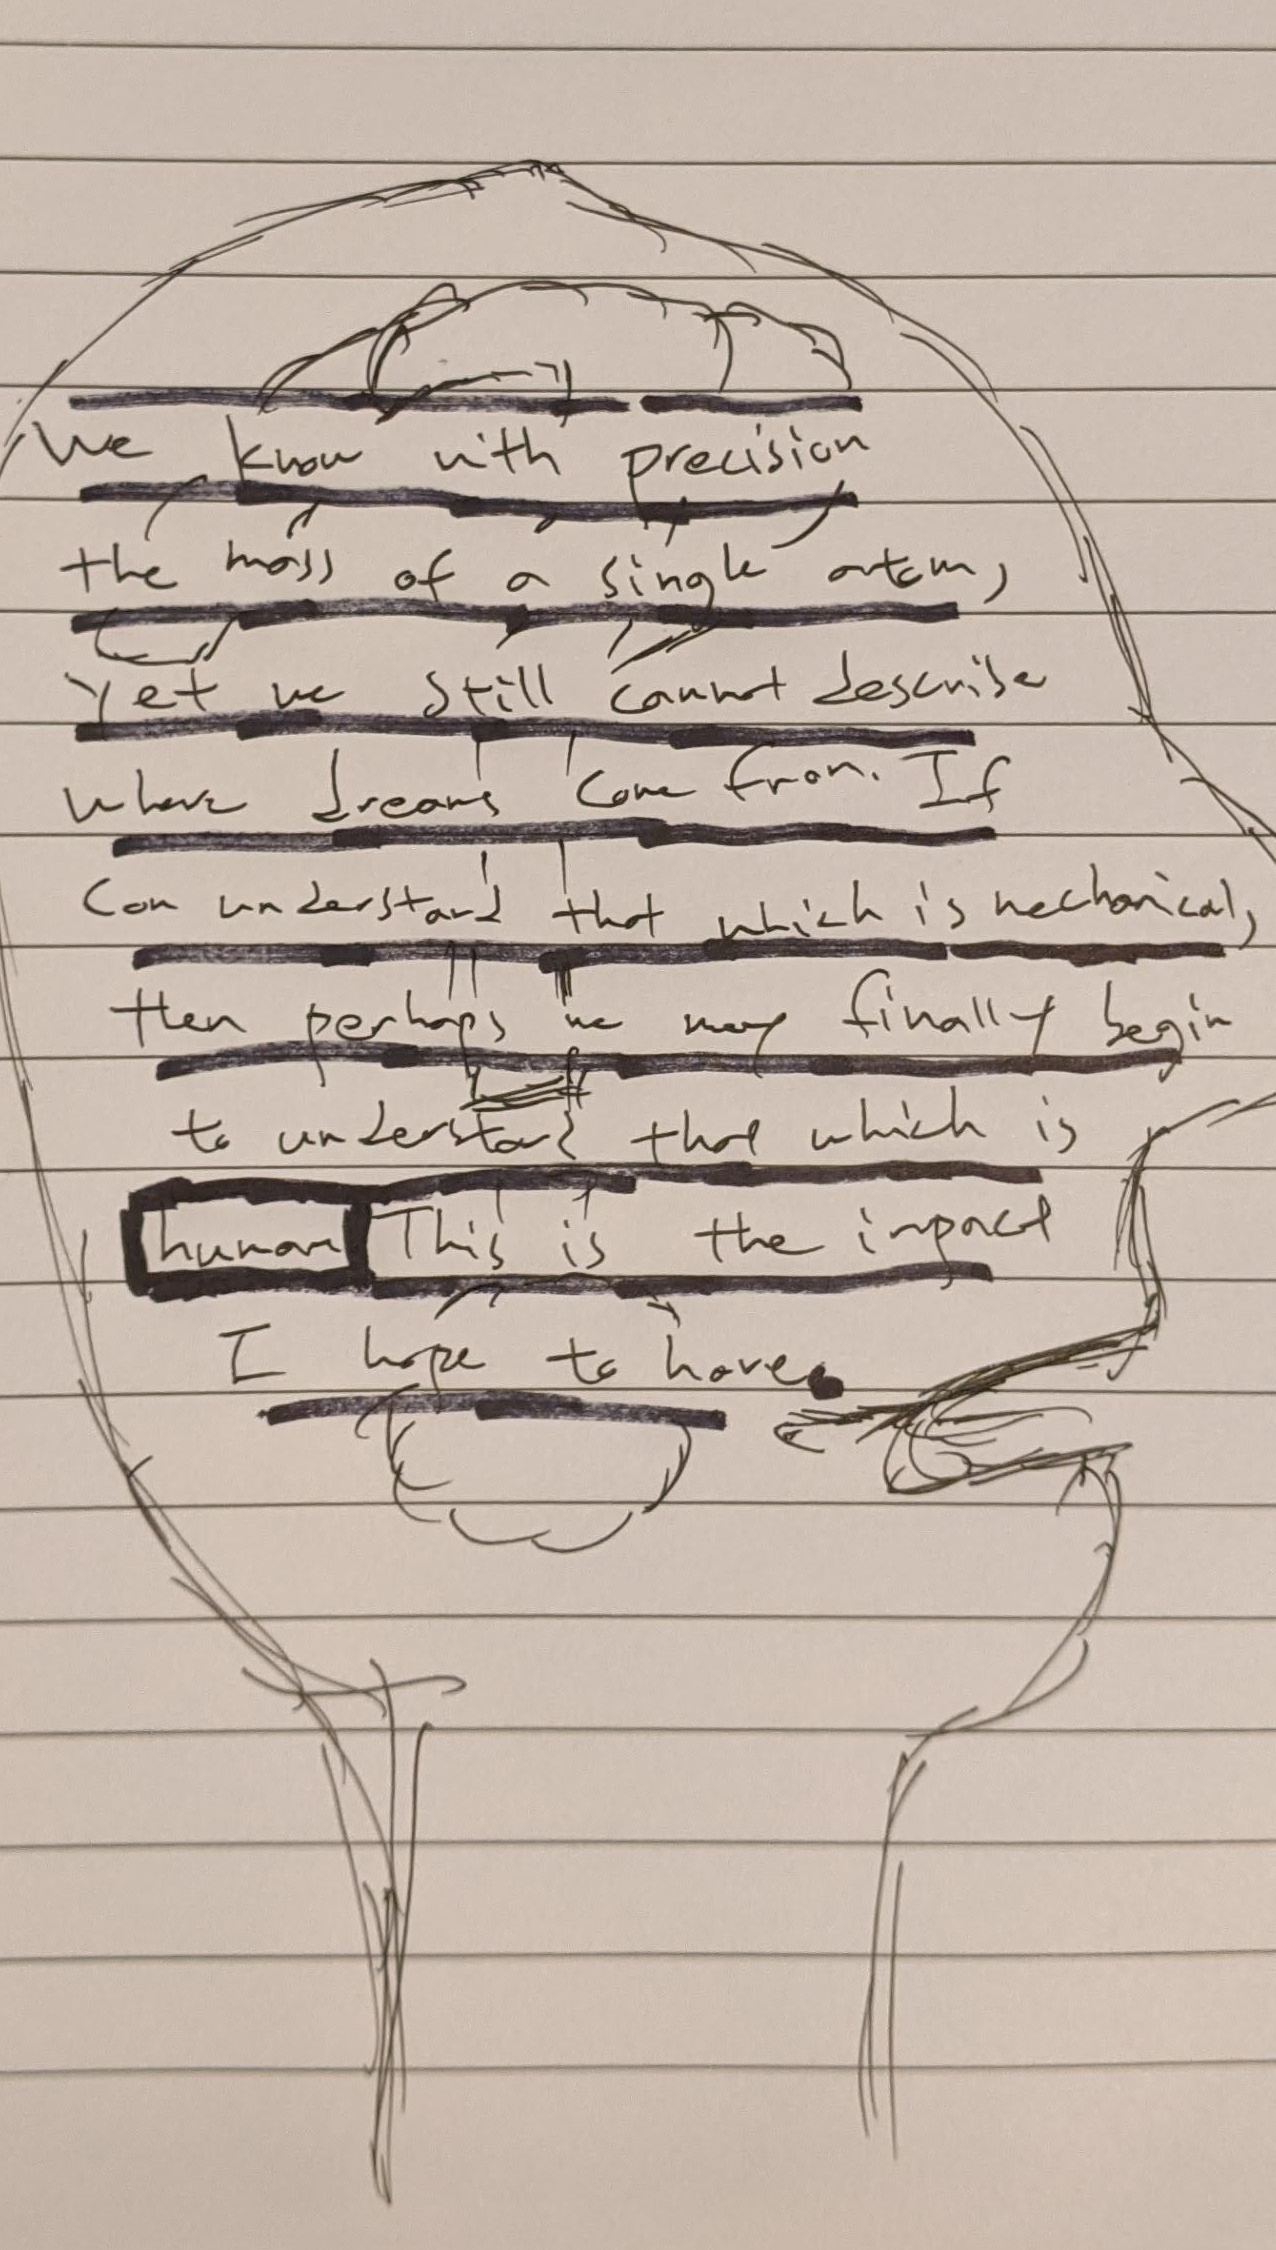 We know with precision
the mass of a single atom,
Yet we still cannot describe
where dreams come from. If
Can understand that which is mechanical,
then perhaps we may finally begin
to understand that which is
human This is the impact
I hope to have.